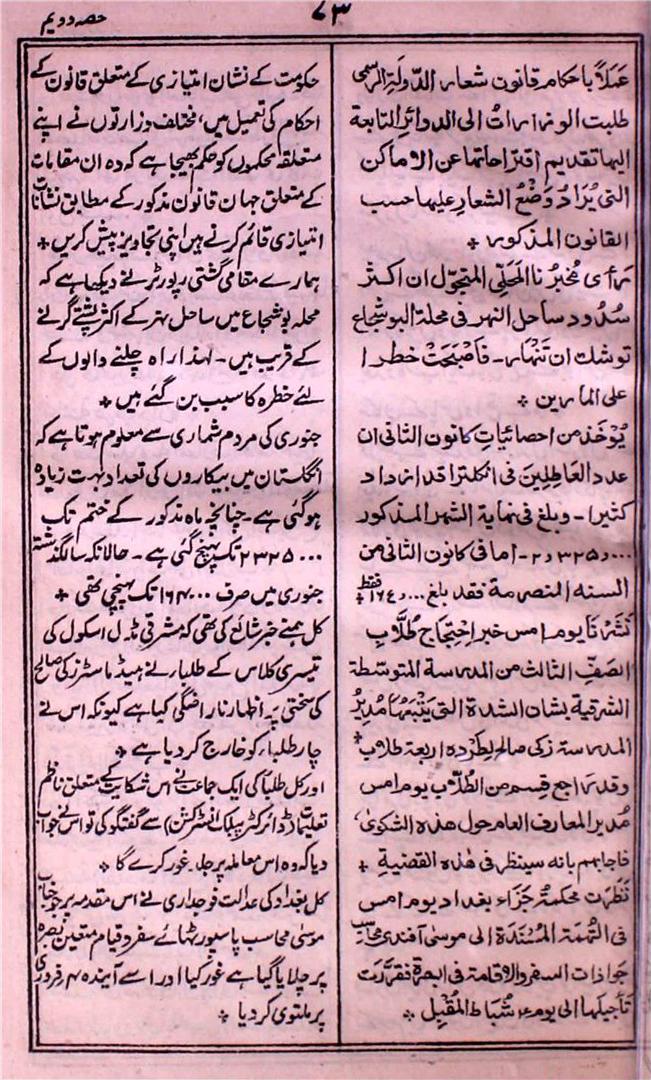 ٨٣
حصہ دویم
عَمَلاً باحکام قانون شعار الدّولَة الرسمی
طلبت الوزارات الی الدوائر التابعة
الیها تقدیم اقتراحاتها عن الاماکن
التی یُرَادُ وَضْعُ الشعارِ علیها حسب
القانون المذکور ÷
رأی مُخبرُنا المحَلّی المتجوّل ان اکثر
سُدُود ساحل النهر فی محلة البوشجاع
توشك ان تَنْهار۔ فاصْبَحَتْ خطرا
علی المارین ÷
یُوْخَذ من احصائیاتِ کانون الثانی ان
عدد العاطلین فی انکلترا قد ازداد
کثیرا۔ وبلغ فی نهایة الشهر المذکور
۲٫۳۲۵٫۰۰۰۔ اما فی کانون الثانی من
السنه المنصرمة فقد بلغ ۱۶۴٫۰۰۰ فقط ÷
نَشَرْنَا یوم امس خبر اِحْتِجاج طُلَّابِ
الصَفِّ الثالث من المدرسة المتوسطة
الشرقیة بشان الشدة التی یتبعها مُدِیْرُ
المدرسة زکی صالح لِطَرْدِه اربعة طلاب ÷
وقد راجع قِسم من الطُلّاب یوم امس
مُدیر المعارف العام حول هذه الشکوی،
فاجابهم بانه سینظر فی هٰذه القضیة ÷
نَظَرَت محکمةُ جَزَاء بغداد یوم امس
فی التُّهمَة المُسْنَدَة الی موسیٰ آفندی محاسب
جوازات السفر والاقامة فی البصرة فقررت
تأجیلها الی یوم ۴ شُباط المُقْبِل ÷
حکومت کے نشان امتیازی کے متعلق قانون کے
احکام کی تعمیل میں، مختلف وزارتوں نے اپنے
متعلقہ محکموں کو حکم بھیجا ہے کہ وہ ان مقامات
کے متعلق جہان قانون مذکور کے مطابق نشانات
امتیازی قائم کرنے ہیں اپنی تجاویز پیش کریں ÷
ہمارے مقامی گشتی رپورٹر نے دیکھا ہے کہ
محلہ بوشجاع میں ساحل نہر کے اکثر پشتے گرنے
کے قریب ہیں۔ لہٰذا راہ چلنے والوں کے
لئے خطرہ کا سبب بن گئے ہیں ÷
جنوری کی مردم شماری سے معلوم ہوتا ہے کہ
انگلستان میں بیکاروں کی تعداد بہت زیادہ
ہوگئی ہے۔ چنانچہ ماہ مذکور کے ختم تک
۲۳۲۵۰۰۰ تک پہنچ گئی ہے۔ حالانکہ سال گذشتہ
جنوری میں صرف ۱۶۴۰۰۰ تک پہنچی تھی ÷
کل ہمنے خبر شائع کی تھی کہ مشرقی مڈل اسکول کی
تیسری کلاس کے طلبا نے ہیڈ ماسٹر زکی صالح
کی سختی پہ اظہار ناراضگی کیا ہے کیونکہ اس نے
چار طلباء کو خارج کر دیا ہے ÷
اور کل طلبا کی ایک جماعت نے اس شکایت کے متعلق ناظم
تعلیمات (ڈائرکٹر پبلک انسٹرکشن) سے گفتگو کی تو اس نے جواب
دیا کہ وہ اس معاملہ پر جلد غور کرے گا ÷
کل بغداد کی عدالت فوجداری نے اس مقدمہ پر جو جناب
موسیٰ محاسب پاسپورٹہائے سفر و قیام متعین بصرہ
پر چلایا گیا ہے غور کیا اور اسے آیندہ ۴ فروری
پر ملتوی کر دیا ÷